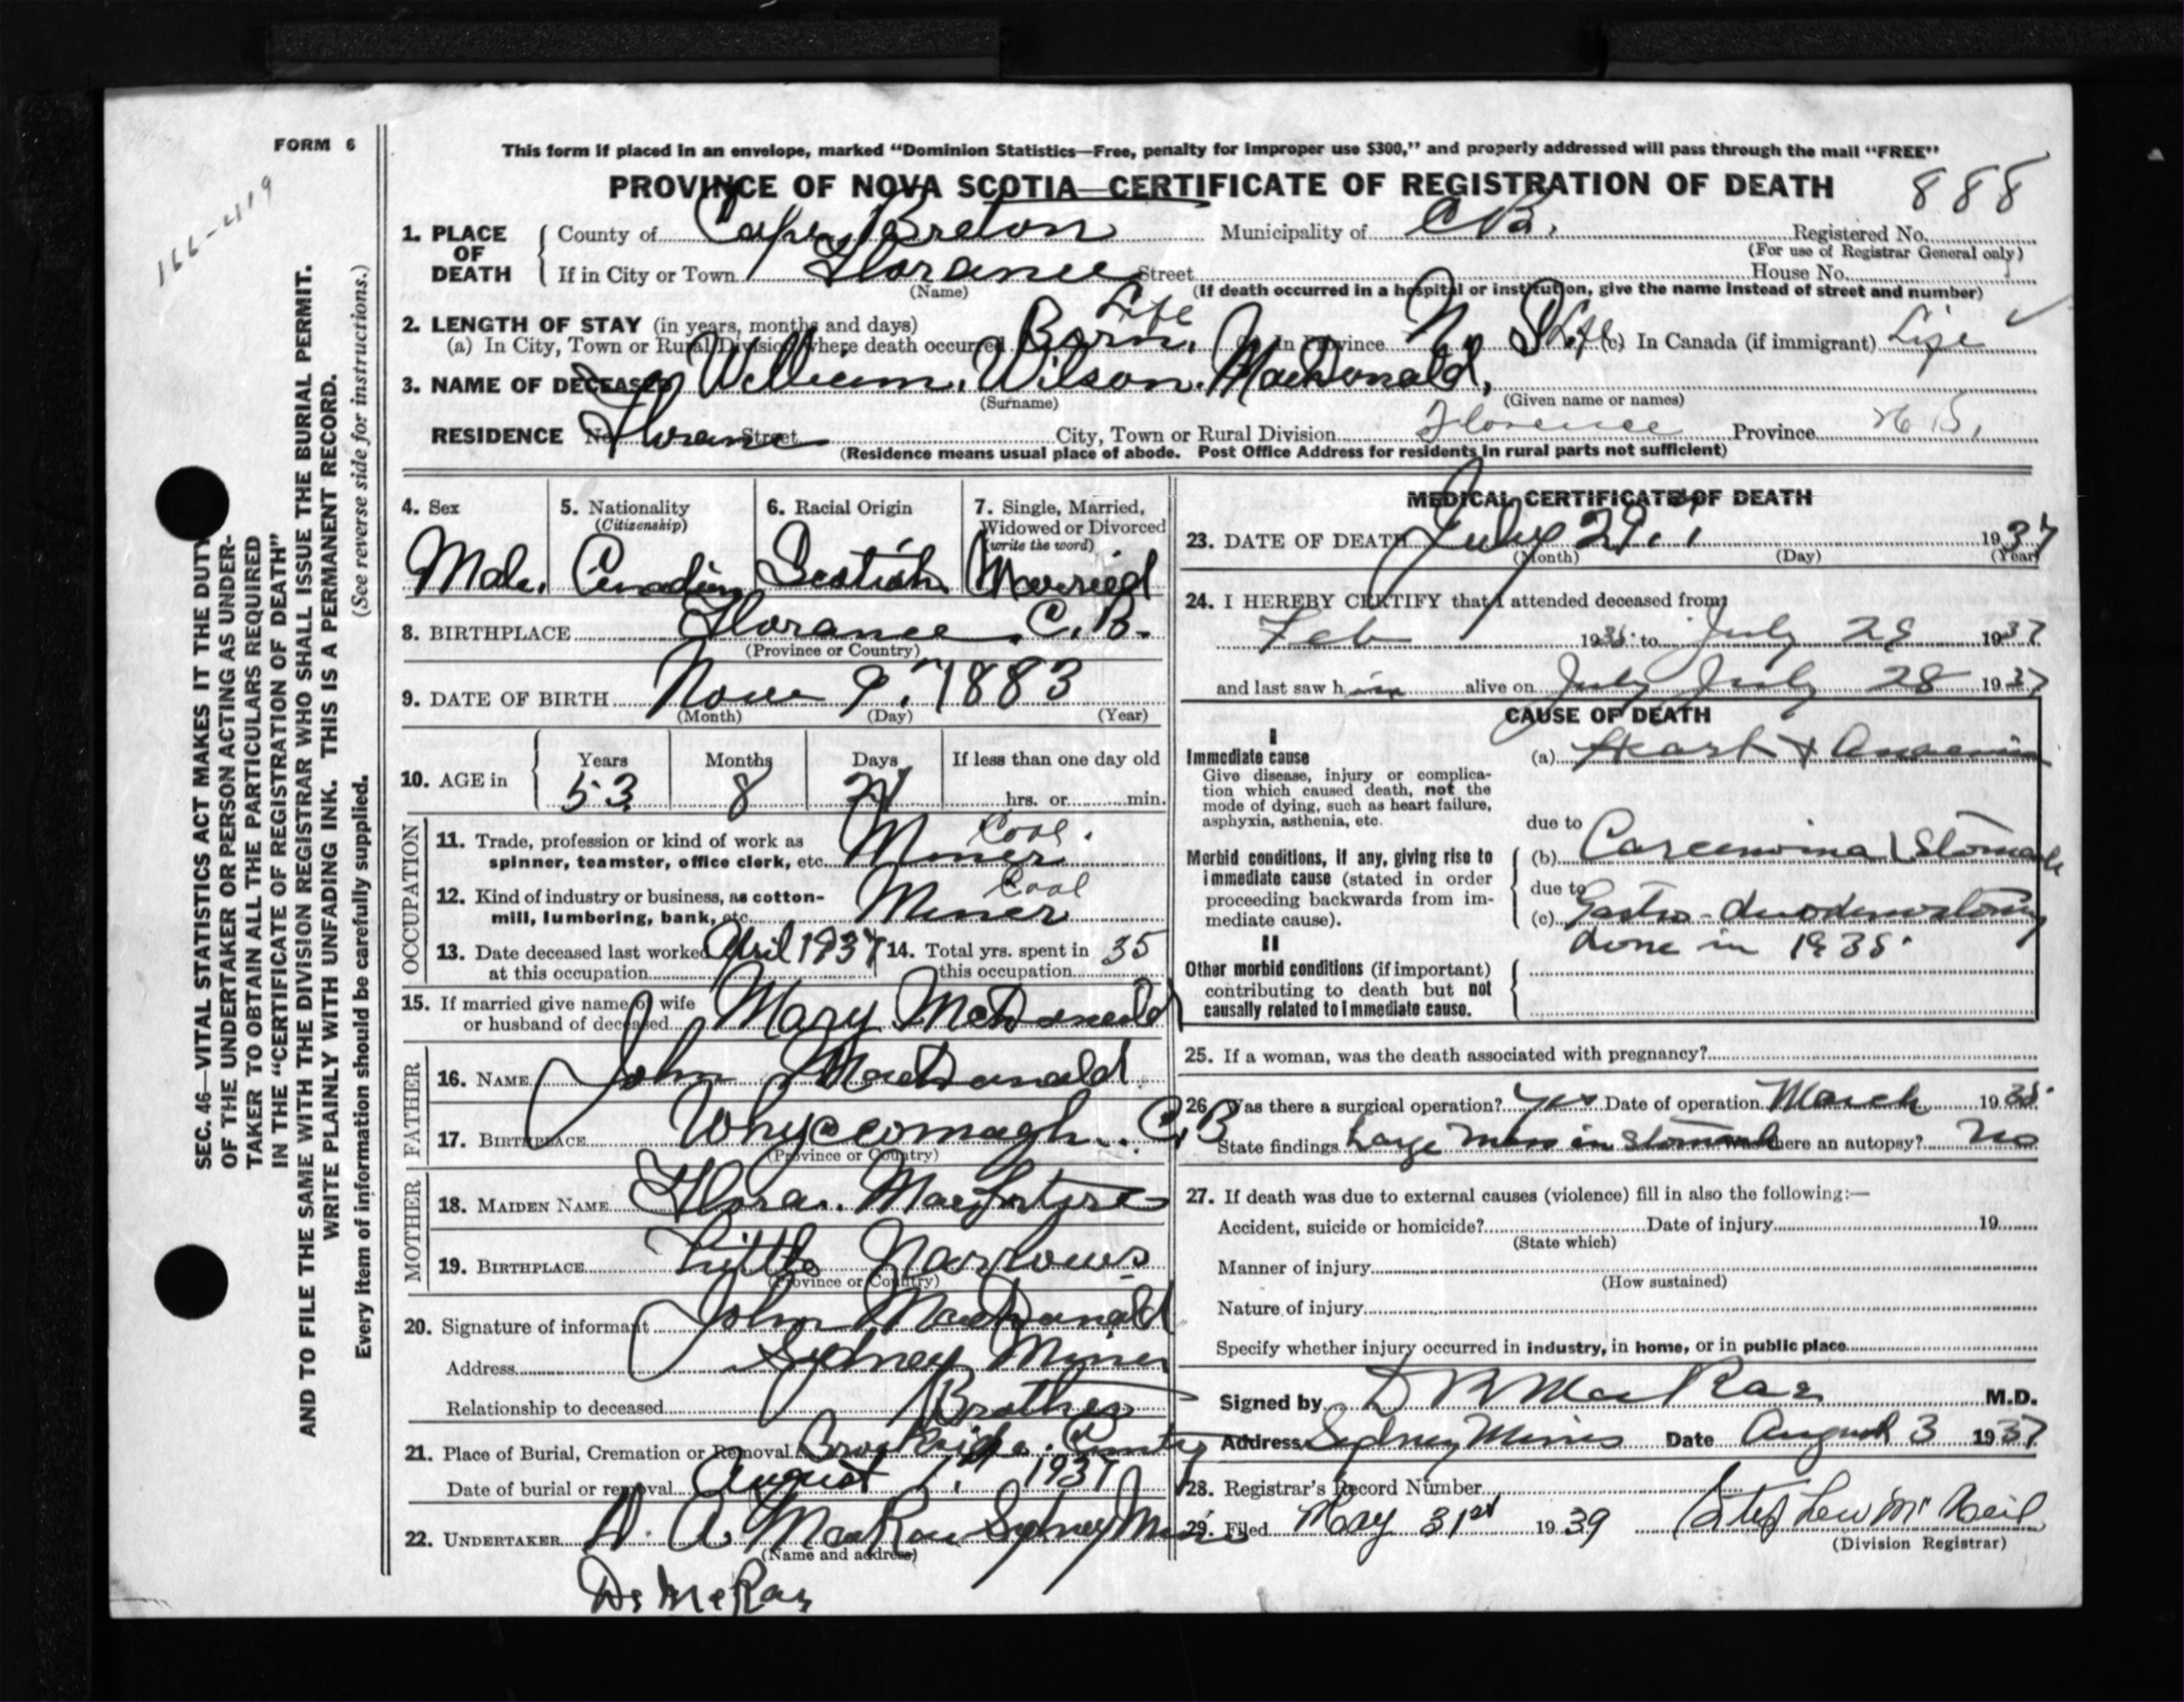 FORM 6
166-419
This form if placed in an envelope, marked "Dominion Statistics—Free, penalty for improper use $300," and properly addressed will pass through the mail "FREE"
PROVINCE OF NOVA SCOTIA—CERTIFICATE OF REGISTRATION OF DEATH 888
1. PLACE OF DEATH { County of Cape Breton Municipality of C B. Registered No.
(For use of Registrar General only)
If in City or Town Florance Street House No.
(Name) (If death occurred in a hospital or institution, give the name instead of street and number)
2. LENGTH OF STAY (in years, months and days) Life
(a) In City, Town or Rural Division where death occurred Born. In Province N. S Life (c) In Canada (if immigrant) Life
3. NAME OF DECEASED William. Wilson. MacDonald.
(Surname) (Given name or names)
RESIDENCE No. Florance Street City, Town or Rural Division Florence Province N S.
(Residence means usual place of abode. Post Office Address for residents in rural parts not sufficient)
4. Sex Male.
5. Nationality (Citizenship) Canadian
6. Racial Origin Scotish
7. Single, Married, Widowed or Divorced (write the word) Married
8. BIRTHPLACE Florance. C. B.
(Province or Country)
9. DATE OF BIRTH Nove 9. 1883
(Month) (Day) (Year)
10. AGE in { Years 53 Months 8 Days 21 If less than one day old hrs. or min.
OCCUPATION
11. Trade, profession or kind of work as spinner, teamster, office clerk, etc. Coal Miner
12. Kind of industry or business, as cotton-mill, lumbering, bank, etc. Coal Miner
13. Date deceased last worked at this occupation April 1937 14. Total yrs. spent in this occupation 35
15. If married give name of wife or husband of deceased Mary McDonald
FATHER
16. NAME John MacDonald
17. BIRTHPLACE Whycocomagh. C. B
(Province or Country)
MOTHER
18. MAIDEN NAME Flora. MacIntyre
19. BIRTHPLACE Little Narrows
(Province or Country)
20. Signature of informant John MacDonald
Address Sydney Mines
Relationship to deceased Brother
21. Place of Burial, Cremation or Removal Brookside.
Date of burial or removal August 1. 1937
22. UNDERTAKER A. MacRae Sydney Mines
(Name and address)
Dr McRae
MEDICAL CERTIFICATE OF DEATH
23. DATE OF DEATH July 29 1937
(Month) (Day) (Year)
24. I HEREBY CERTIFY that I attended deceased from
Feb 1935 to July 29 1937
and last saw him alive on July July 28 1937
CAUSE OF DEATH
I
Immediate cause (a) Heart & Anaemia
Give disease, injury or complication which caused death, not the mode of dying, such as heart failure, asphyxia, asthenia, etc.
due to
Morbid conditions, if any, giving rise to immediate cause (stated in order proceeding backwards from immediate cause).
(b) Carcinoma Stomach
due to
(c) Gastro-duodenostomy
done in 1935.
II
Other morbid conditions (if important) contributing to death but not causally related to immediate cause.
25. If a woman, was the death associated with pregnancy?
26. Was there a surgical operation? Yes Date of operation March 1935
State findings Large mass in stomach Was there an autopsy? No
27. If death was due to external causes (violence) fill in also the following:—
Accident, suicide or homicide? Date of injury 19
(State which)
Manner of injury
(How sustained)
Nature of injury
Specify whether injury occurred in industry, in home, or in public place
Signed by D R MacRae M.D.
Address Sydney Mines Date August 3 1937
28. Registrar's Record Number
29. Filed May 31st 1939 Stephen McNeil
(Division Registrar)
SEC. 46—VITAL STATISTICS ACT MAKES IT THE DUTY
OF THE UNDERTAKER OR PERSON ACTING AS UNDER-
TAKER TO OBTAIN ALL THE PARTICULARS REQUIRED
IN THE "CERTIFICATE OF REGISTRATION OF DEATH"
AND TO FILE THE SAME WITH THE DIVISION REGISTRAR WHO SHALL ISSUE THE BURIAL PERMIT.
WRITE PLAINLY WITH UNFADING INK. THIS IS A PERMANENT RECORD.
Every item of information should be carefully supplied. (See reverse side for instructions.)